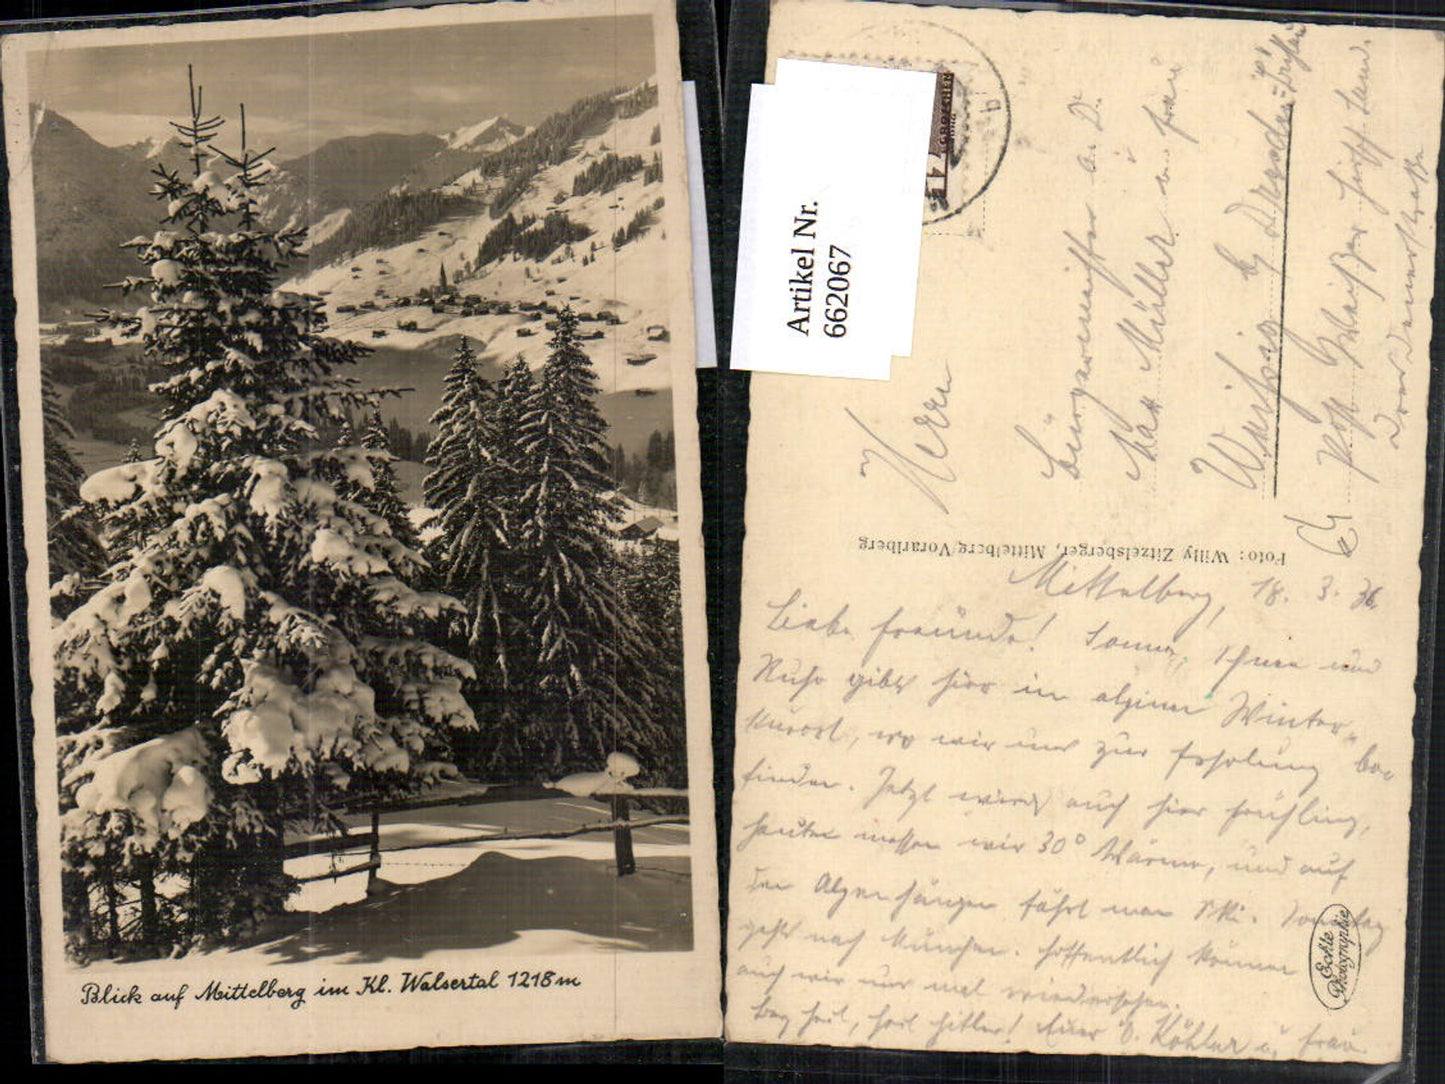 Blick auf Mittelberg im Kl. Walsertal 1218 m
Artikel Nr.
662067
Herrn
Bürgermeister a. D.
Max Müller u. Frau
Foto: Willy Zitzelsberger, Mittelberg/Vorarlberg
Echte
Photographie
Mittelberg, 18. 3. 36.
Liebe Freunde! Sonne, Ihnen und
Ruhe gibts hier im alpinen Winter-
kurort, wo wir uns zur Erholung be-
finden. Jetzt wirds auch hier Frühling,
heute messen wir 30° Wärme, und auf
den Alpenhängen fährt man Ski. Sonntag
gehts nach München. Hoffentlich können
auch wir uns mal wiedersehen.
Berg Heil, Heil Hitler! Euer O. Köhler u. Frau.